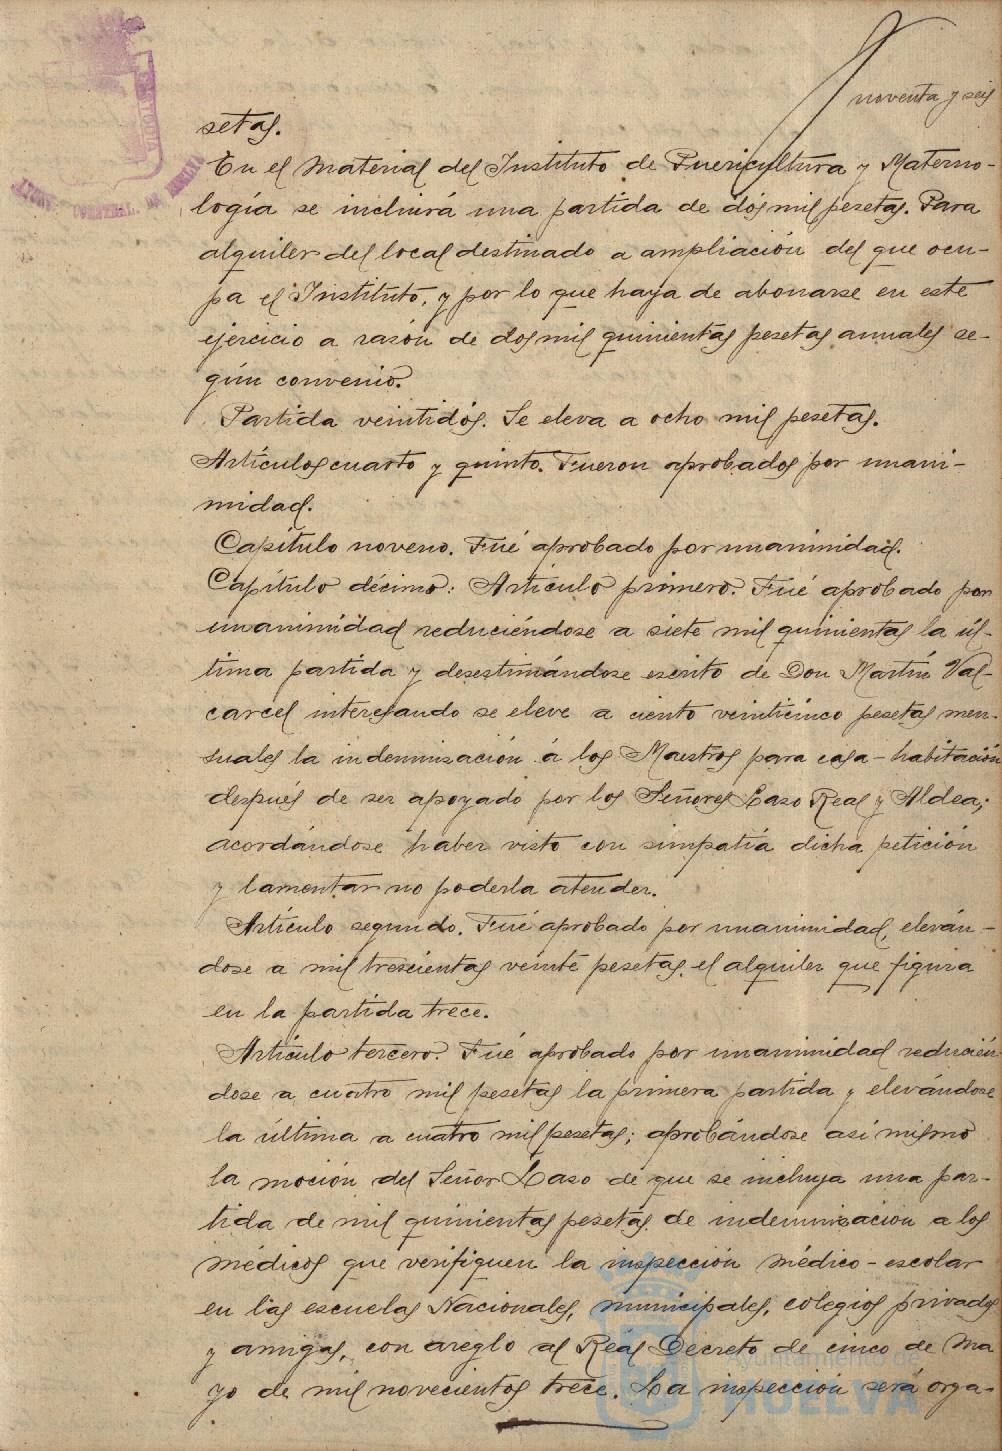 noventa y seis
setas.
En el Material del Instituto de Puericultura y Materno-
logía se incluirá una partida de dos mil pesetas. Para
alquiler del local destinado a ampliación del que ocu-
pa el Instituto, y por lo que haya de abonarse en este
ejercicio a razón de dos mil quinientas pesetas anuales se-
gún convenio.
Partida veintidós. Se eleva a ocho mil pesetas.
Artículos cuarto y quinto. Fueron aprobados por unani-
midad.
Capítulo noveno. Fué aprobado por unanimidad.
Capítulo décimo: Artículo primero. Fué aprobado por
unanimidad reduciéndose a siete mil quinientas la úl-
tima partida y desestimándose escrito de Don Martín Val-
carcel interesando se eleve a ciento veinticinco pesetas men-
suales la indemnización á los Maestros para casa-habitación
después de ser apoyado por los Señores Laso Real y Aldea;
acordándose haber visto con simpatía dicha petición
y lamentar no poderla atender.
Artículo segundo. Fué aprobado por unanimidad, eleván-
dose a mil trescientas veinte pesetas el alquiler que figura
en la partida trece.
Artículo tercero. Fué aprobado por unanimidad reducién
dose a cuatro mil pesetas la primera partida y elevándose
la última a cuatro mil pesetas; aprobándose así mismo
la moción del Señor Laso de que se incluya una par-
tida de mil quinientas pesetas de indemnización a los
médicos que verifiquen la inspección médico-escolar
en las escuelas Nacionales, municipales, colegios privados
y amigas, con areglo al Real Decreto de cinco de Ma
yo de mil novecientos trece. La inspección será orga-
Ayuntamiento de
HUELVA